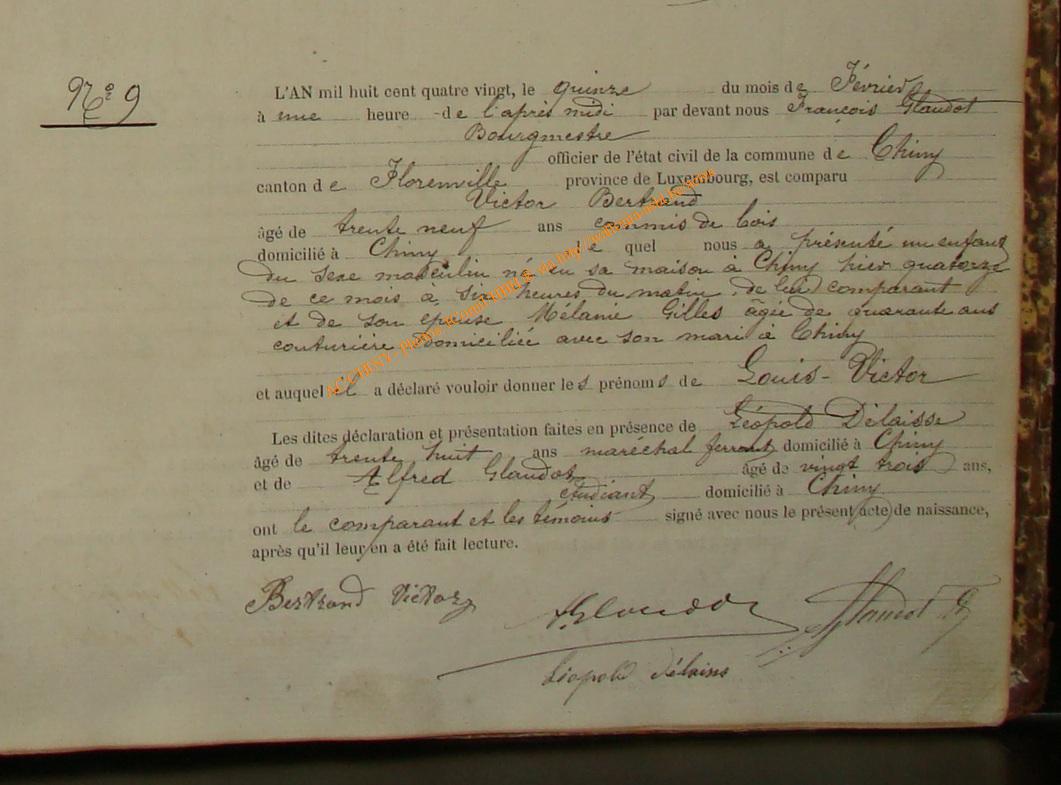 No 9
L'AN mil huit cent quatre vingt, le quinze du mois de Février
à une heure de l'après midi par devant nous François Glaudot
Bourgmestre
officier de l'état civil de la commune de Chiny
canton de Florenville province de Luxembourg, est comparu
Victor Bertrand
âgé de trente neuf ans commis de bois
domicilié à Chiny le quel nous a présenté un enfant
du sexe masculin né en sa maison à Chiny hier quatorze
de ce mois à six heures du matin, de lui comparant
et de son épouse Mélanie Gilles âgée de quarante ans
couturière domiciliée avec son mari à Chiny
et auquel il a déclaré vouloir donner les prénoms de Louis-Victor
Les dites déclaration et présentation faites en présence de Léopold Delaisse
âgé de trente huit ans maréchal ferrant domicilié à Chiny
et de Alfred Glaudot âgé de vingt trois ans,
étudiant domicilié à Chiny
ont le comparant et les témoins signé avec nous le présent acte de naissance,
après qu'il leur en a été fait lecture.
Bertrand Victor
Glaudot
Léopold